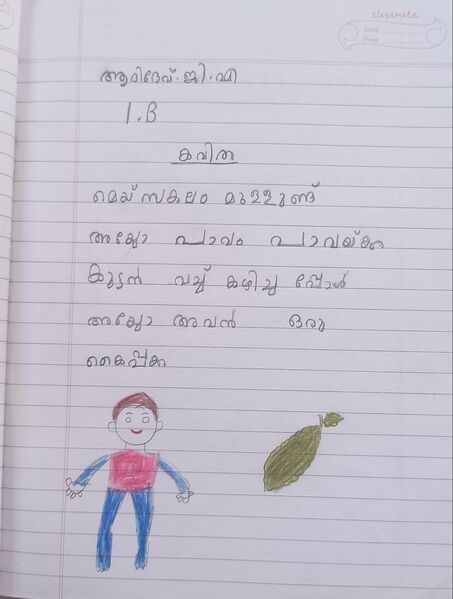 classmate
Date
Page
ആദിദേവ്.ജി.വി
1.B
കവിത
മെയ് സകലം മുള്ളുണ്ട്
അയ്യോ പാവം പാവയ്ക്ക
കുട്ടൻ വച്ച് കഴിച്ചപ്പോൾ
അയ്യോ അവൻ ഒരു
കൈപ്പക്ക